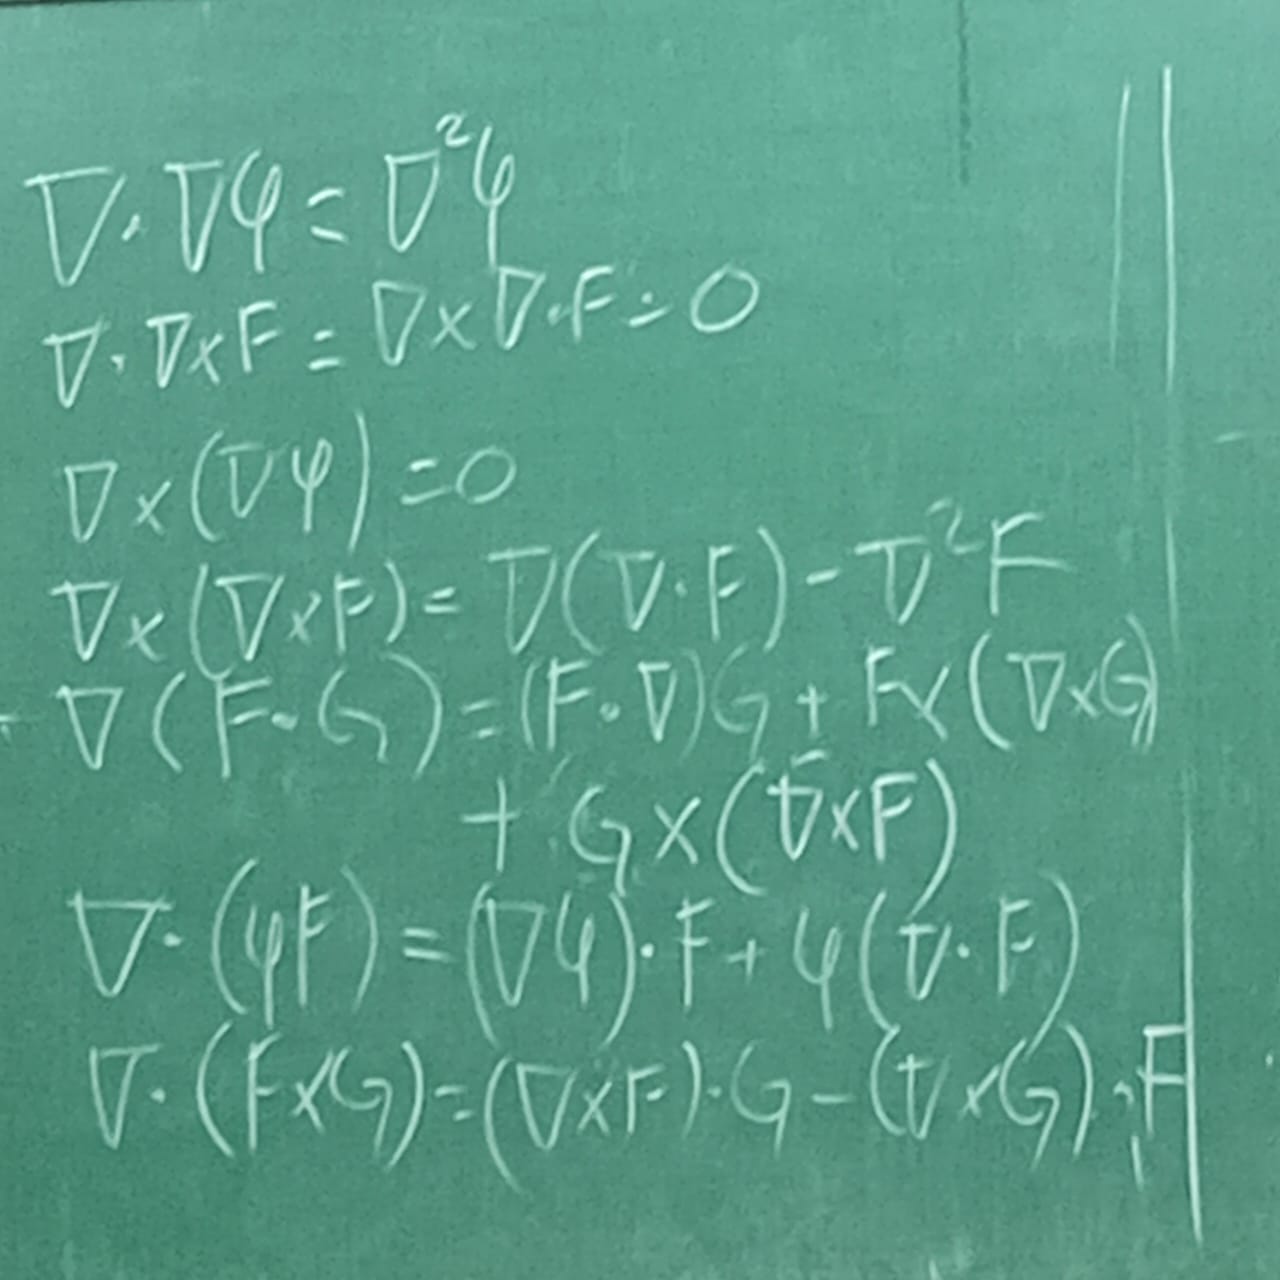 ∇·∇φ = ∇²φ
∇·∇×F = ∇×∇·F = 0
∇×(∇φ) = 0
∇×(∇×F) = ∇(∇·F) - ∇²F
∇(F·G) = (F·∇)G + F×(∇×G)
+ G×(∇×F)
∇·(φF) = (∇φ)·F + φ(∇·F)
∇·(F×G) = (∇×F)·G - (∇×G)·F